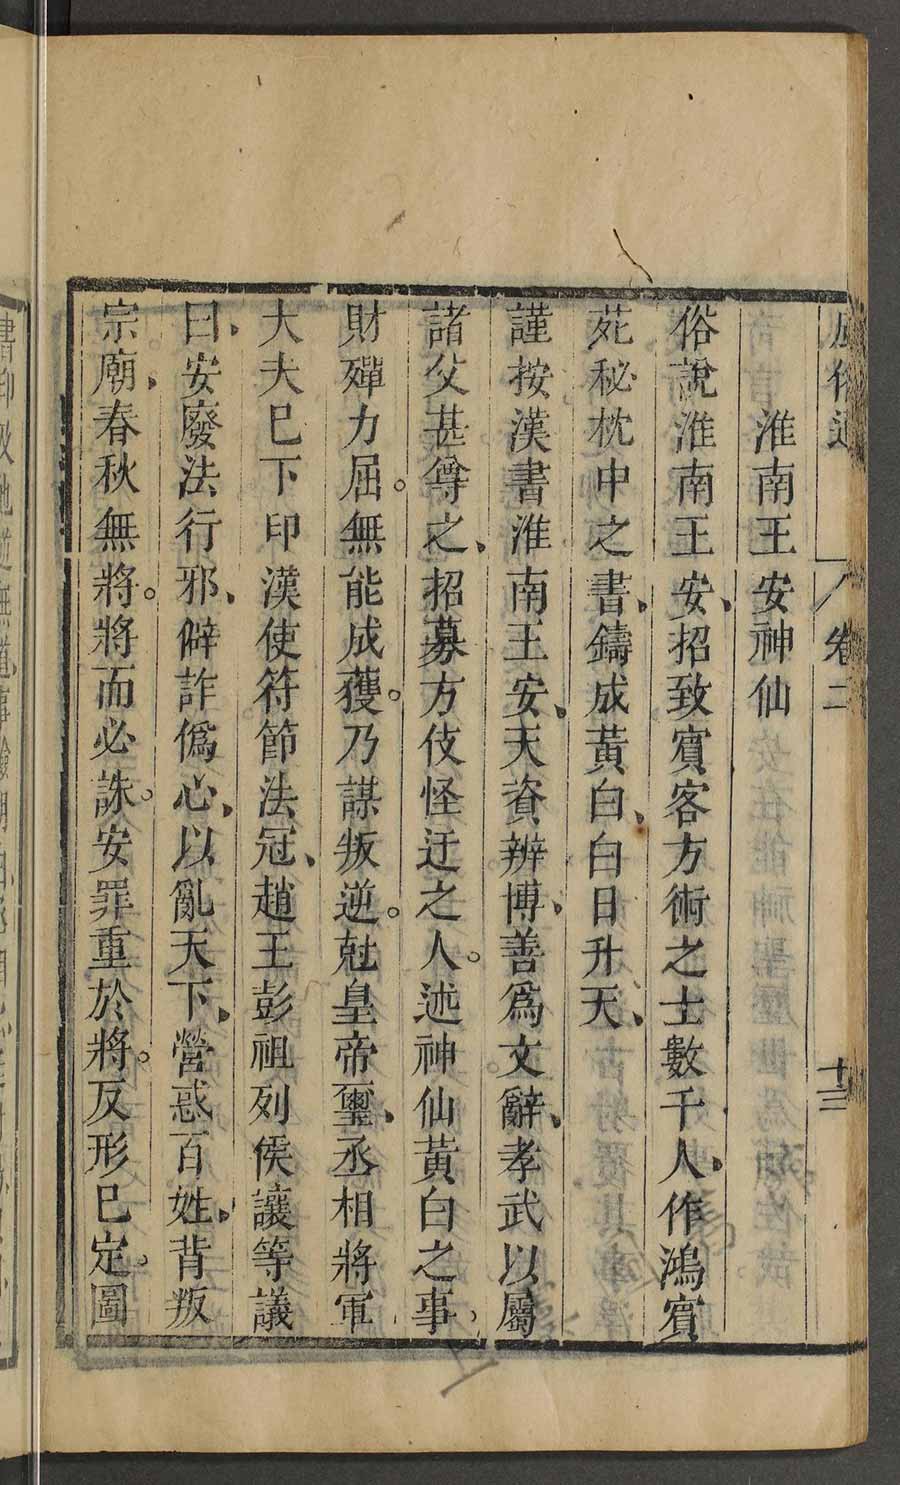 卷二
十三
淮南王安神仙
俗說淮南王安、招致賓客方術之士數千人、作鴻寳
苑秘枕中之書、鑄成黃白、白日升天、
謹按漢書淮南王安、天資辨博、善爲文辭、孝武以屬
諸父甚尊之、招募方伎怪迂之人。述神仙黃白之事、
財殫力屈。無能成獲。乃謀叛逆。尅皇帝璽、丞相將軍
大夫巳下印漢使符節法冠、趙王彭祖列侯讓等議
曰、安廢法行邪、僻詐僞心、以亂天下、營惑百姓、背叛
宗廟、春秋無將。將而必誅。安罪重於將。反形巳定。圖